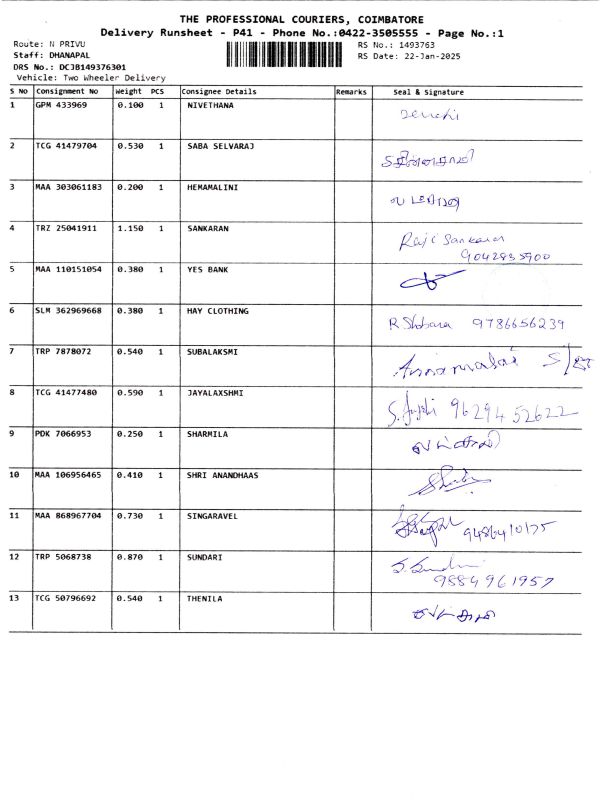 THE PROFESSIONAL COURIERS, COIMBATORE
Delivery Runsheet - P41 - Phone No.:0422-3505555 - Page No.:1
Route: N PRIVU
RS No.: 1493763
Staff: DHANAPAL
RS Date: 22-Jan-2025
DRS No.: DCJB149376301
Vehicle: Two Wheeler Delivery
S No Consignment No Weight PCS Consignee Details Remarks Seal & Signature
1 GPM 433969 0.100 1 NIVETHANA
2 TCG 41479704 0.530 1 SABA SELVARAJ
3 MAA 303061183 0.200 1 HEMAMALINI
4 TRZ 25041911 1.150 1 SANKARAN Raji Sankaran
9042835900
5 MAA 110151054 0.380 1 YES BANK
6 SLM 362969668 0.380 1 HAY CLOTHING R Shobana 9786656239
7 TRP 7878072 0.540 1 SUBALAKSMI Annamalai
8 TCG 41477480 0.590 1 JAYALAXSHMI S. Anjali 9629452622
9 PDK 7066953 0.250 1 SHARMILA
10 MAA 106956465 0.410 1 SHRI ANANDHAAS
11 MAA 868967704 0.730 1 SINGARAVEL
12 TRP 5068738 0.870 1 SUNDARI
9884961957
13 TCG 50796692 0.540 1 THENILA